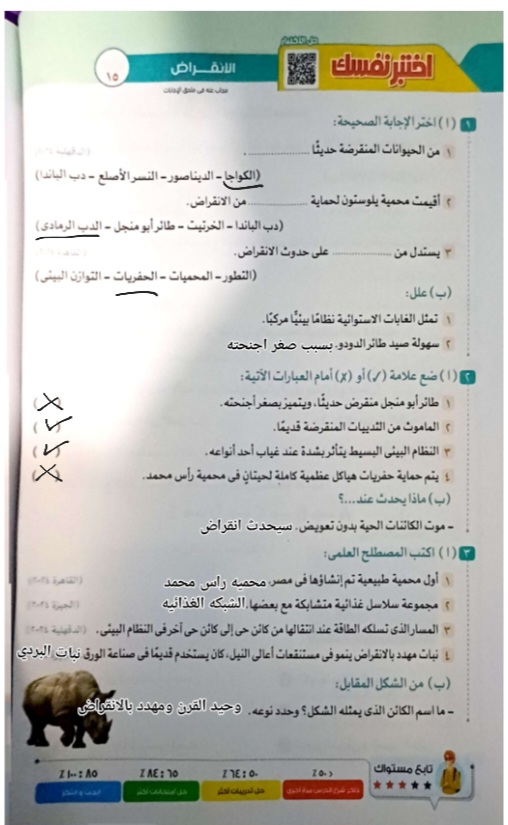 حل الاختبار
اختبر نفسك
الانقراض
١٥
مجاب عنه في ملحق الإجابات
١ (أ) اختر الإجابة الصحيحة:
١ من الحيوانات المنقرضة حديثًا .................. (الدقهلية ٢٠٢٤)
(الكواجا - الديناصور - النسر الأصلع - دب الباندا)
٢ أقيمت محمية يلوستون لحماية .................. من الانقراض.
(دب الباندا - الخرتيت - طائر أبو منجل - الدب الرمادى)
٣ يستدل من .................. على حدوث الانقراض. (القاهرة
(التطور - المحميات - الحفريات - التوازن البيئى)
(ب) علل:
١ تمثل الغابات الاستوائية نظامًا بيئيًّا مركبًا.
٢ سهولة صيد طائر الدودو. بسبب صغر اجنحته
٢ (أ) ضع علامة (✓) أو (✗) أمام العبارات الآتية:
١ طائر أبو منجل منقرض حديثًا، ويتميز بصغر أجنحته. (✗)
٢ الماموث من الثدييات المنقرضة قديمًا. (✓)
٣ النظام البيئى البسيط يتأثر بشدة عند غياب أحد أنواعه. (✓)
٤ يتم حماية حفريات هياكل عظمية كاملة لحيتان فى محمية رأس محمد. (✗)
(ب) ماذا يحدث عند...؟
- موت الكائنات الحية بدون تعويض. سيحدث انقراض
٣ (أ) اكتب المصطلح العلمى:
١ أول محمية طبيعية تم إنشاؤها فى مصر. محميه راس محمد (القاهرة ٢٠٢٤)
٢ مجموعة سلاسل غذائية متشابكة مع بعضها. الشبكه الغذائيه (الجيزة ٢٠٢٤)
٣ المسار الذى تسلكه الطاقة عند انتقالها من كائن حى إلى كائن حى آخر فى النظام البيئى. (الدقهلية ٢٠٢٤)
٤ نبات مهدد بالانقراض ينمو فى مستنقعات أعالى النيل، كان يستخدم قديمًا فى صناعة الورق نبات البردي
(ب) من الشكل المقابل:
- ما اسم الكائن الذى يمثله الشكل؟ وحدد نوعه. وحيد القرن ومهدد بالانقراض
تابع مستواك
< ٥٠٪
٥٠ : ٦٤٪
٦٥ : ٨٤٪
٨٥ : ١٠٠٪
ذاكر شرح الدرس مرة أخرى
حل تدريبات أكثر
حل امتحانات أكثر